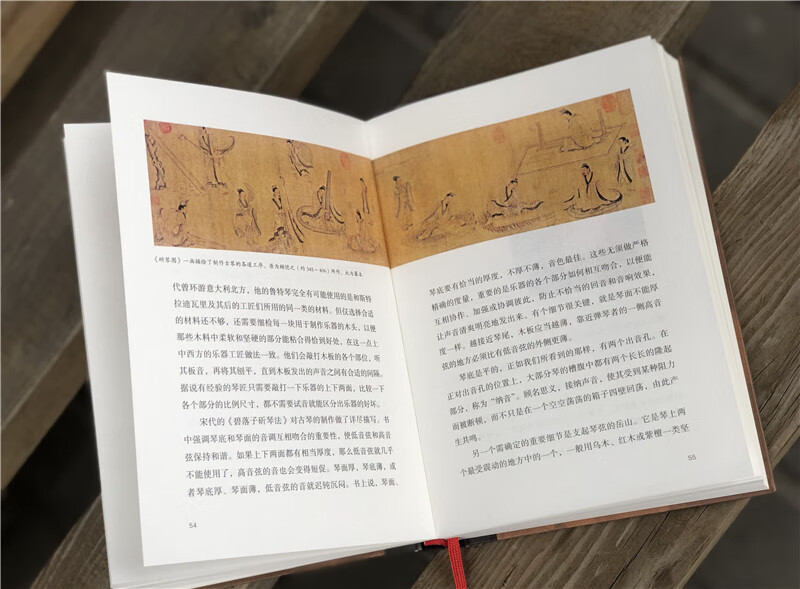 《斫琴图》一画描绘了制作古琴的各道工序。原为顾恺之（约 345—406）所作，此为摹本
代曾环游意大利北方，他的鲁特琴完全有可能使用的是和斯特
拉迪瓦里及其后的工匠们所用的同一类的材料。但仅选择合适
的材料还不够，还需要细检每一块用于制作乐器的木头，以便
那些木料中柔软和坚硬的部分能粘合得恰到好处，在这一点上
中西方的乐器工匠做法一致。他们会敲打木板的各个部位，听
其板音，再将其刨平，直到木板发出的声音之间有合适的间隔。
据说有经验的琴匠只需要敲打一下乐器的上下两面，比较一下
各个部分的比例尺寸，都不需要试音就能区分出乐器的好坏。
宋代的《碧落子斫琴法》对古琴的制作做了详尽描写。书
中强调琴底和琴面的音调互相吻合的重要性，使低音弦和高音
弦保持和谐。如果上下两面都有相当厚度，那么低音弦就几乎
不能使用了，高音弦的音也会变得短促。琴面厚，琴底薄，或
者琴底厚、琴面薄，低音弦的音就迟钝沉闷。书上说，琴面、
54
琴底要有恰当的厚度，不厚不薄，音色最佳。这些无须做严格
精确的度量，重要的是乐器的各个部分如何相互吻合，以便能
互相协作、加强或协调彼此，防止不恰当的回音和音响效果，
让声音清爽明亮地发出来。有个细节很关键，就是琴面不能厚
度一样。越接近琴尾，木板应当越薄，靠近弹琴者的一侧高音
弦的地方必须比有低音弦的外侧更薄。
琴底是平的，正如我们所看到的那样，有两个出音孔。在
正对出音孔的位置上，大部分琴的槽腹中都有两个长长的隆起
部分，称为“纳音”。顾名思义，接纳声音，使其受到某种阻力
而被断顿，而不只是在一个空空荡荡的箱子四壁回荡，由此产
生共鸣。
另一个需确定的重要细节是支起琴弦的岳山。它是琴上两
个最受震动的地方中的一个，一般用乌木、红木或紫檀一类坚
55